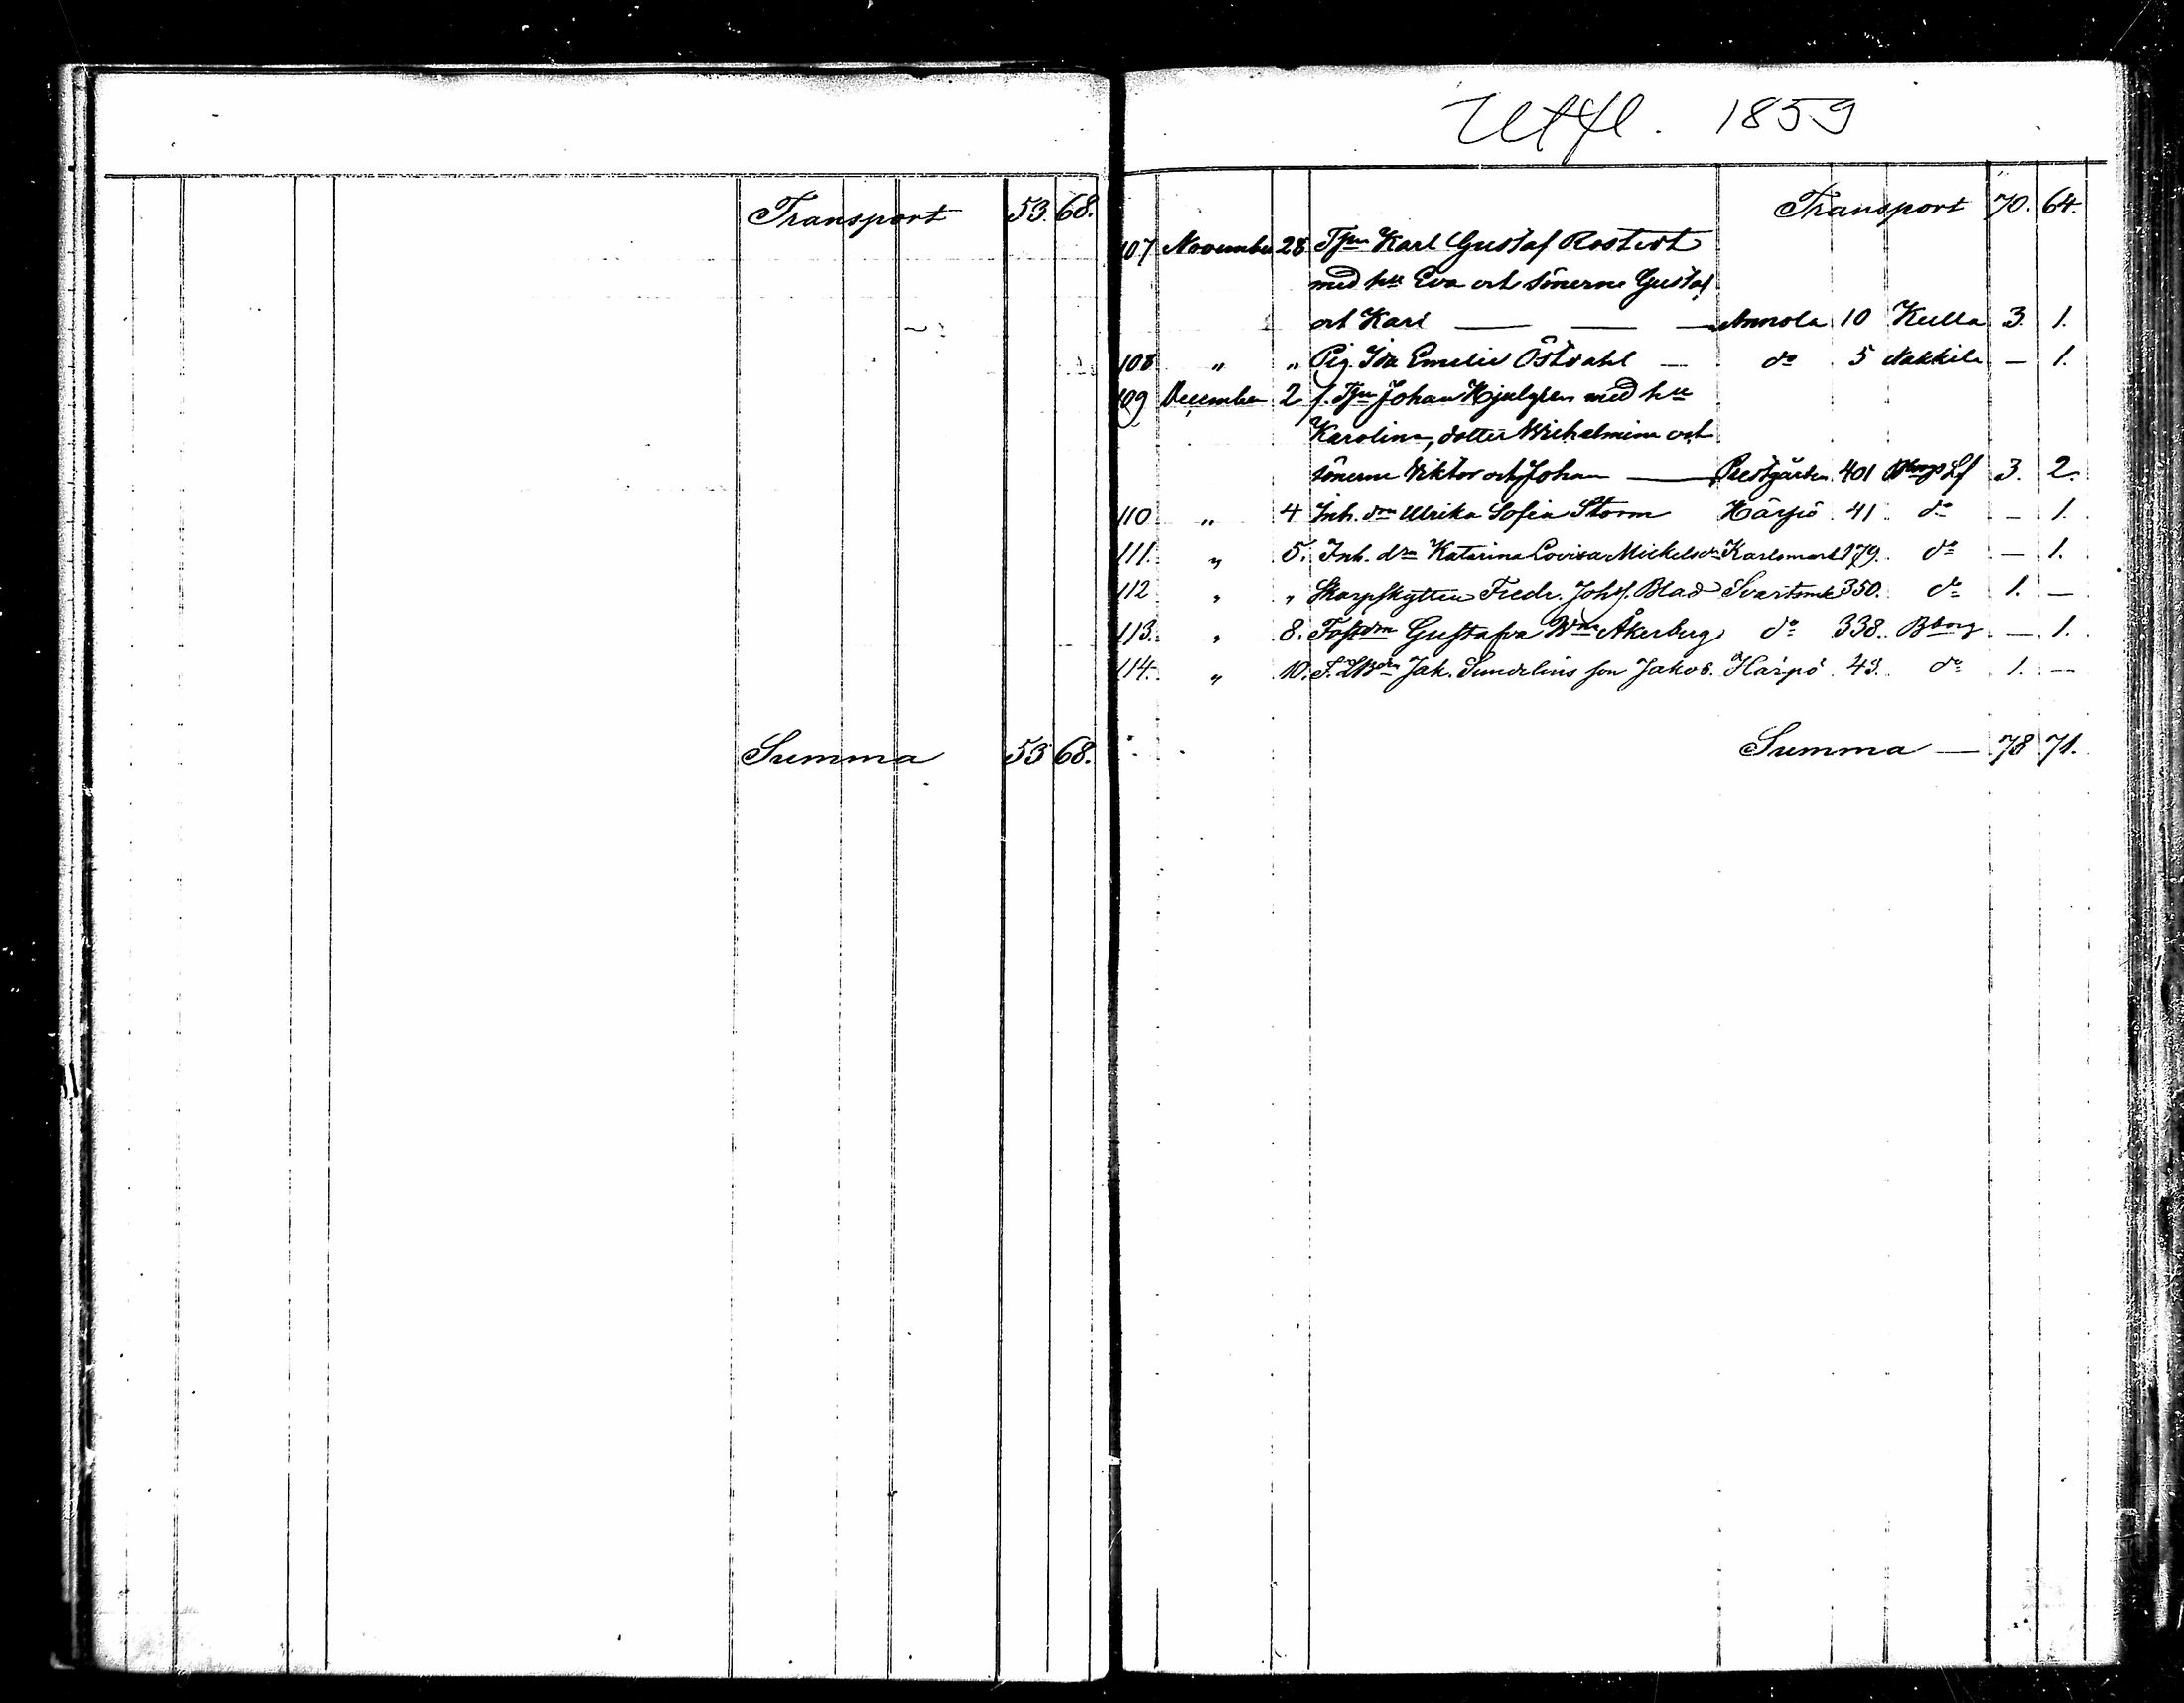 Transport 53. 68.
Summa 53 68.
Utfl. 1859
Transport 70. 64.
107 November 28 Karl Gustaf Rostedt
med hu Eva och sönerne Gustaf
och Karl — — — Annola 10 Kulla 3. 1.
108 " " Pig. Ida Emelie Östdahl — do 5 Nakkila — 1.
109 December 2 f. Johan Hjelgren med hu
Karolina, dotter Wilhelmina och
sönerne Viktor och Johan — Prestgården 401 Lf 3. 2.
110 " 4 Inh. drn Ulrika Sofia Storm Hárpö 41 do — 1.
111. " 5. Inh. drn Katarina Lovisa Karlsmark 179. do — 1.
112 " " Skarpskytten Fredr. Blad 350. do 1. —
113. " 8. Gustafva Wma Åkerberg do 338. Bborg — 1.
114. " 10. Jak. Sundelius son Jakob. Hárpö 43. do 1. —
Summa — 78 71.